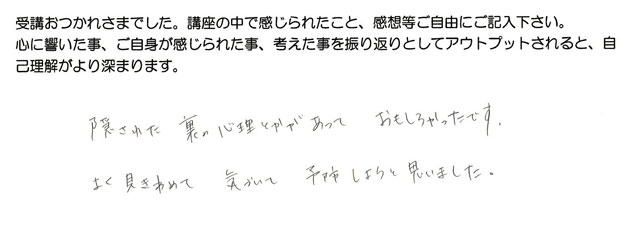 受講おつかれさまでした。講座の中で感じられたこと、感想等ご自由にご記入下さい。
心に響いた事、ご自身が感じられた事、考えた事を振り返りとしてアウトプットされると、自
己理解がより深まります。
隠された 裏の心理とかがあって おもしろかったです。
よく見きわめて 気づいて 予防しようと思いました。